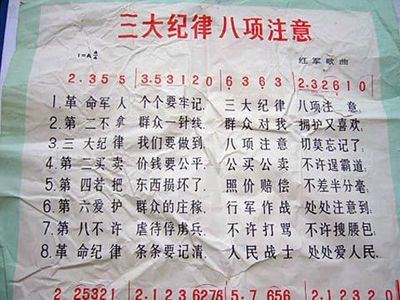 三大纪律八项注意
1=A 4/4 红军歌曲
2.355 3.53120 6363 2.32610
1.革命军人 个个要牢记. 三大纪律 八项注意.
2.第二不拿 群众一针线. 群众对我 拥护又喜欢;
3.三大纪律 我们要做到. 八项注意 切莫忘记了;
4.第二买卖 价钱要公平. 公买公卖 不许逞霸道;
5.第四若把 东西损坏了. 照价赔偿 不差半分毫;
6.第六爱护 群众的庄稼. 行军作战 处处注意到;
7.第八不许 虐待俘虏兵. 不许打骂 不许搜腰包
8.革命纪律 条条要记清. 人民战士 处处爱人民.
2.25321 2.1236276 5.7656 2.1230